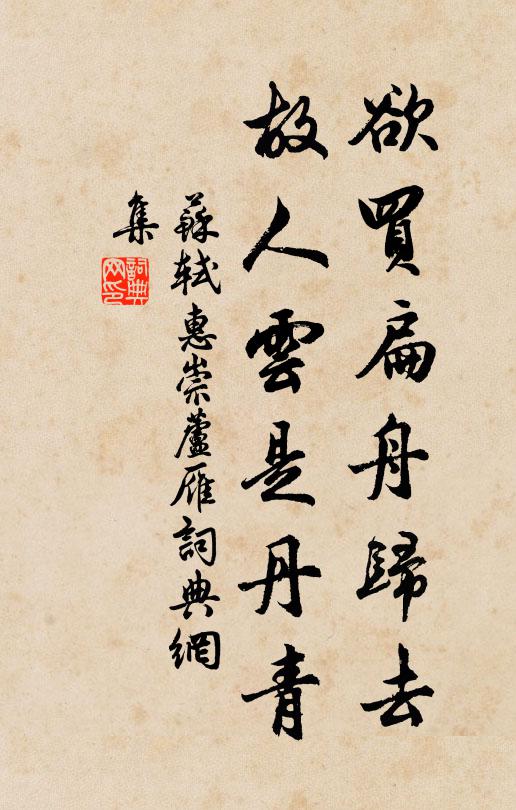 欲買扁舟歸去
故人雲是丹青
蘇軾惠崇蘆雁詞典網
集
詞典
网印